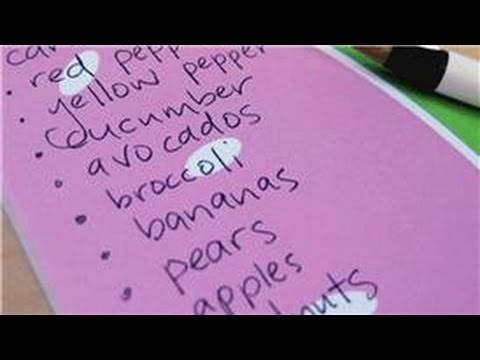 • red pepp
• yellow pepper
• cucumber
• avocados
• broccoli
• bananas
• pears
• apples